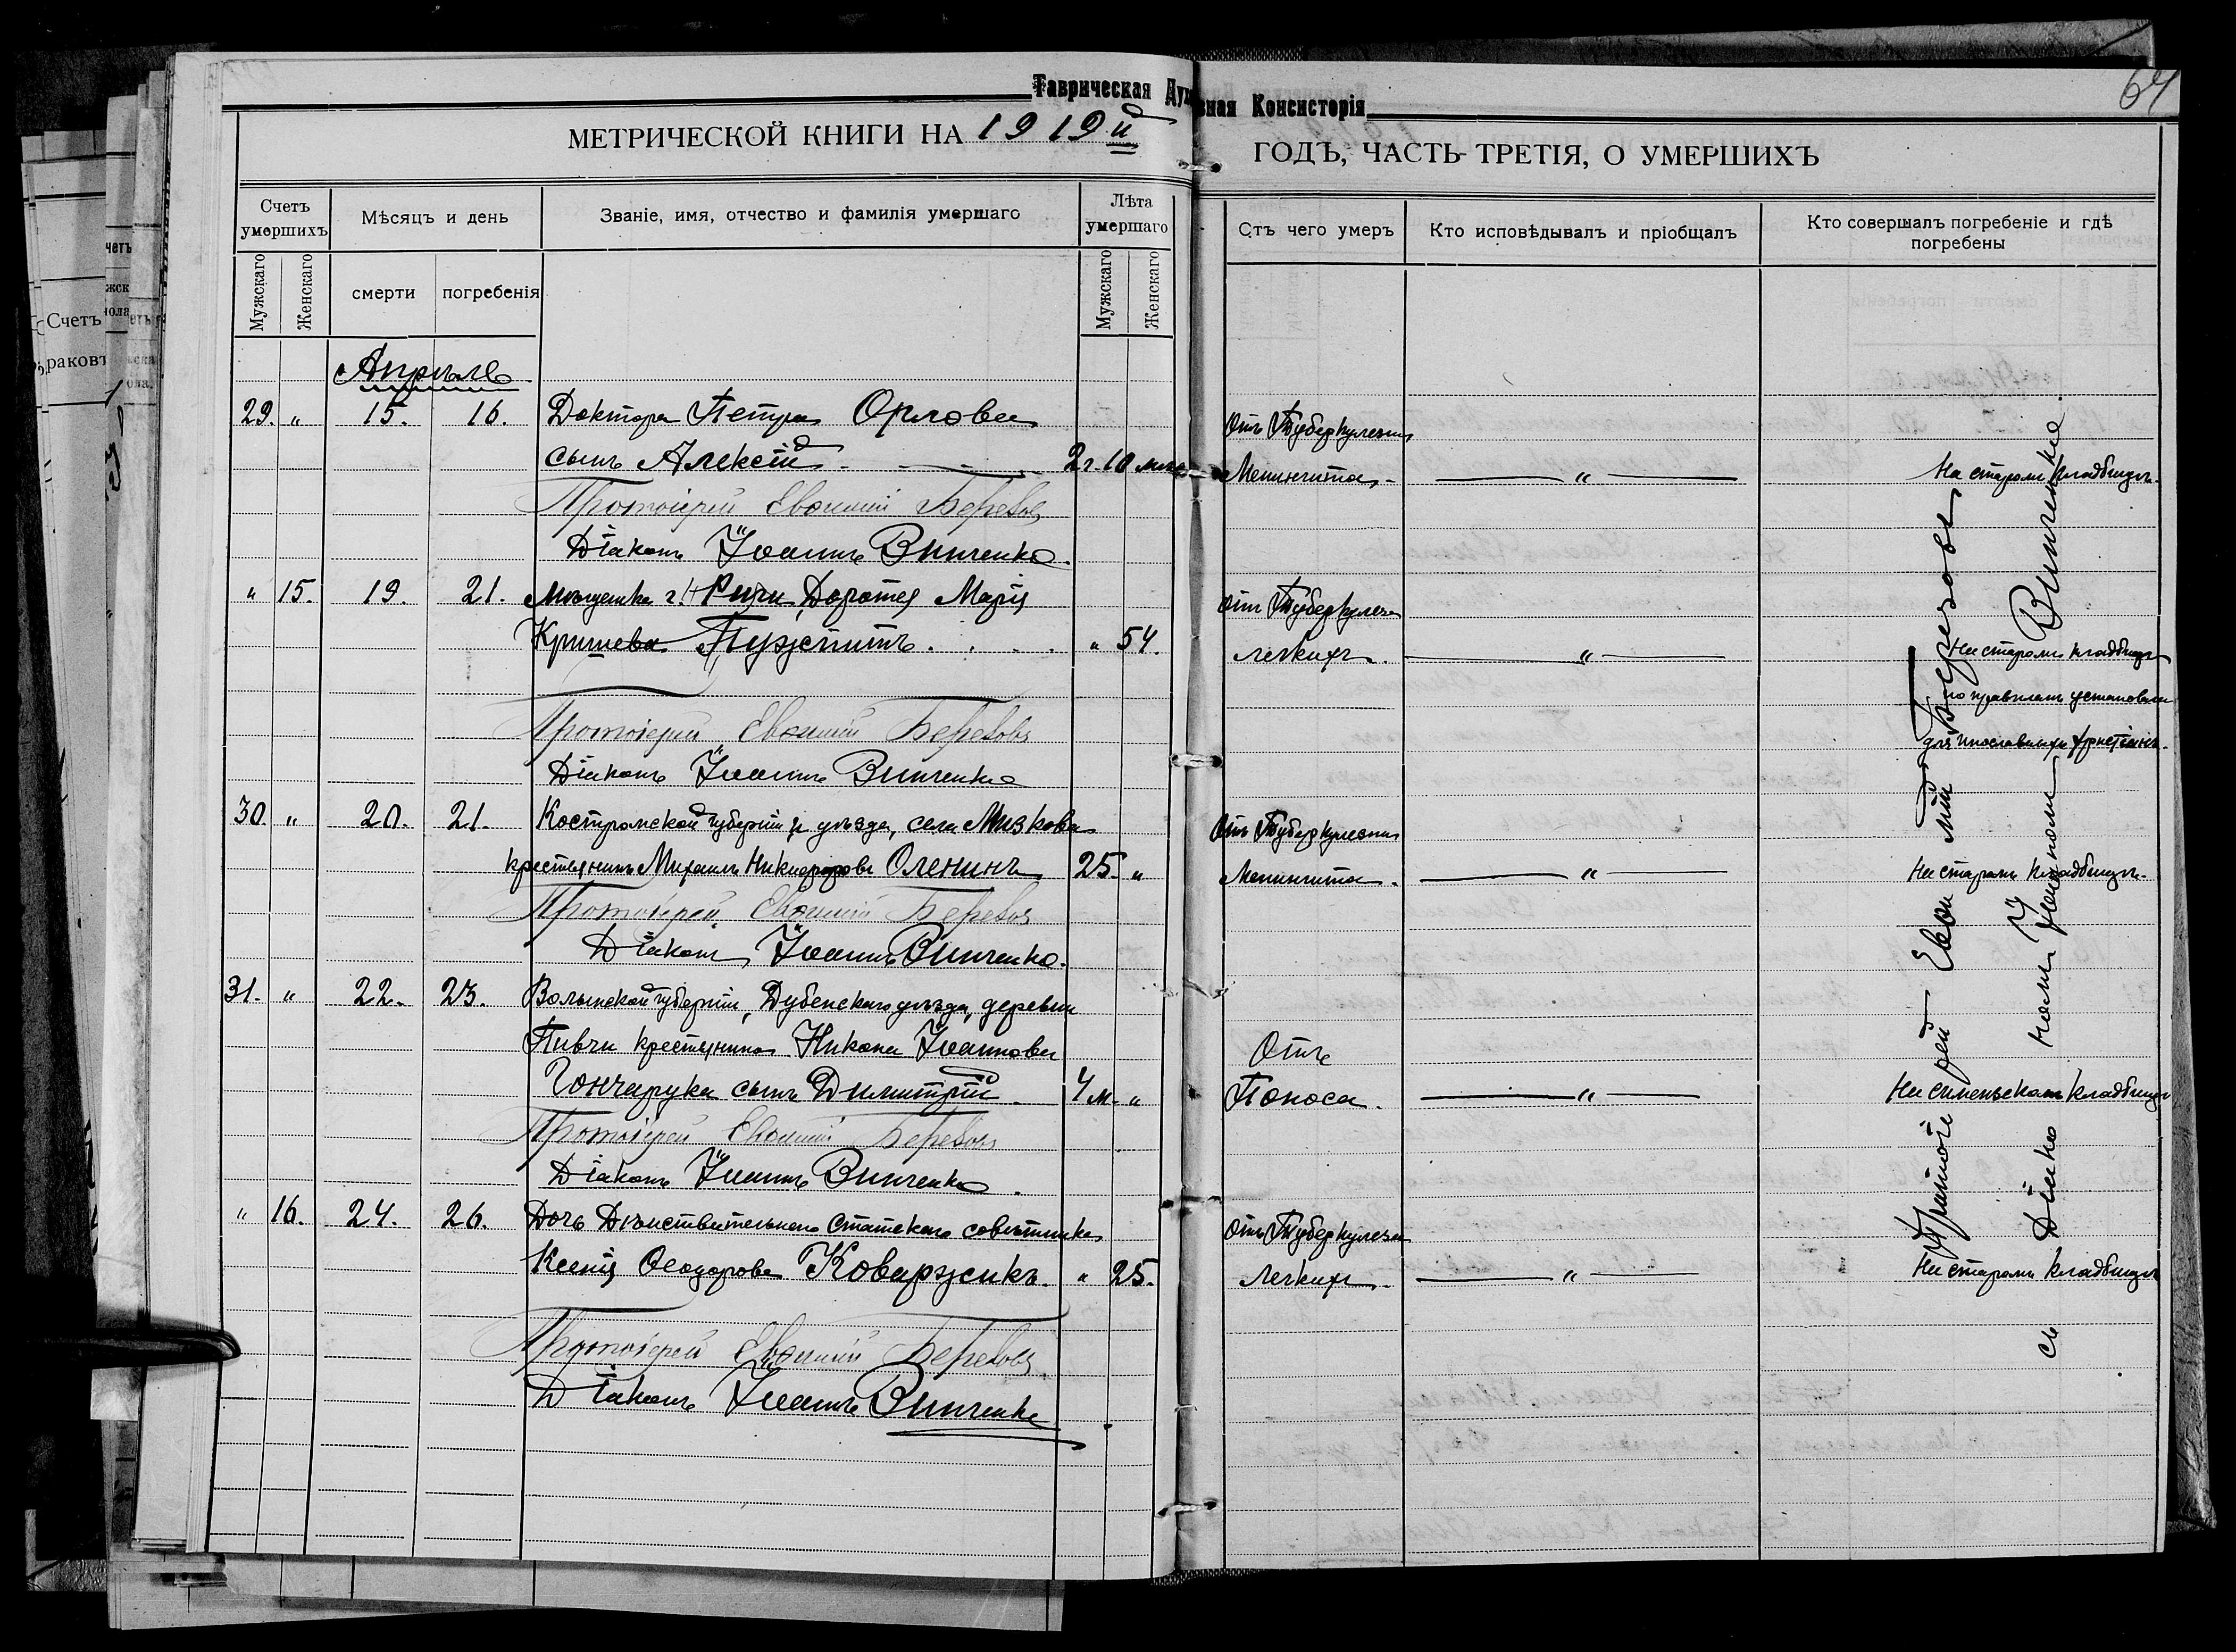 Таврическая Духовная Консисторія
64
МЕТРИЧЕСКОЙ КНИГИ НА 1919й
ГОДЪ, ЧАСТЬ ТРЕТІЯ, О УМЕРШИХЪ
Счетъ умершихъ
Мѣсяцъ и день
Званіе, имя, отчество и фамилія умершаго
Лѣта умершаго
Отъ чего умеръ
Кто исповѣдывалъ и пріобщалъ
Кто совершалъ погребеніе и гдѣ погребены
Мужскаго
Женскаго
смерти
погребенія
Мужскаго
Женскаго
Счетъ
Апрѣль
29. " 15. 16. Доктора Петра Орлова
Отъ Туберкулезна
сынъ Алексій 2 г. 10 мѣс
Менингита - " - На старомъ кладбищѣ.
Протоіерей Евѳимій Березовъ
Діаконъ Іоаннъ Винченко.
" 15. 19. 21. Мѣщанка г. Риги, Доротея Марія
Отъ Туберкулеза
Кришева . . . . " 54.
легкихъ. - " - На старомъ кладбищѣ
по правиламъ установлен
для инославныхъ христіанъ.
Протоіерей Евѳимій Березовъ
Діаконъ Іоаннъ Винченко
30. " 20. 21. Костромской губерніи и уѣзда, села Мизкова
Отъ Туберкулезна
крестьянинъ Михаилъ Никифоровъ Оленинъ 25. "
Менингита. - " - На старомъ кладбищѣ.
Протоіерей Евѳимій Березовъ
Діаконъ Іоаннъ Винченко.
31. " 22. 23. Волынской губерніи, Дубенскаго уѣзда, деревни
Пивчи крестьянина Никона Іоаннова
Отъ
Гончарука сынъ Димитрій. 4 м. "
Поноса. - " - На симеизскомъ кладбищѣ
Протоіерей Евѳимій Березовъ
Діаконъ Іоаннъ Винченко.
" 16. 24. 26. Дочь Дѣйствительнаго Статскаго совѣтника
Отъ Туберкулеза
Ксенія Ѳеодорова Коваржикъ. " 25.
Легкихъ. - " - На старомъ кладбищѣ
Протоіерей Евѳимій Березовъ
Діаконъ Іоаннъ Винченко
Протоіерей Евѳимій Березовъ
съ Діакономъ Іоанномъ Винченко.